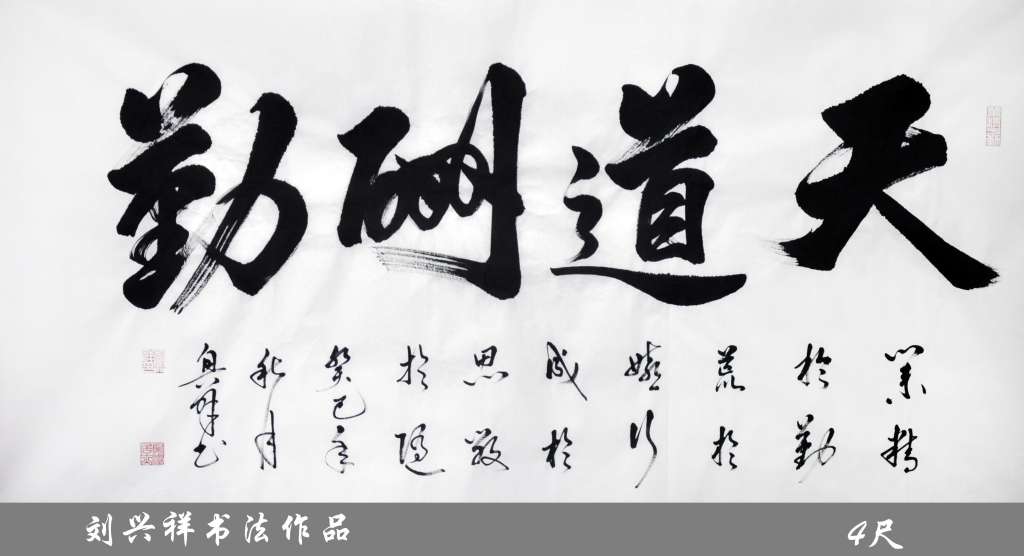 天道酬勤
業精
於勤
荒於
嬉行
成於
思毀
於隨
癸巳年
秋月
興祥书
刘兴祥书法作品
4尺